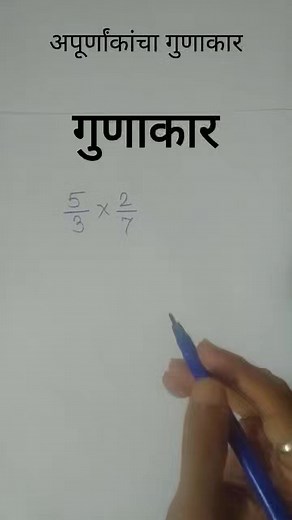 अपूर्णांकांचा गुणाकार
गुणाकार
5/3 × 2/7